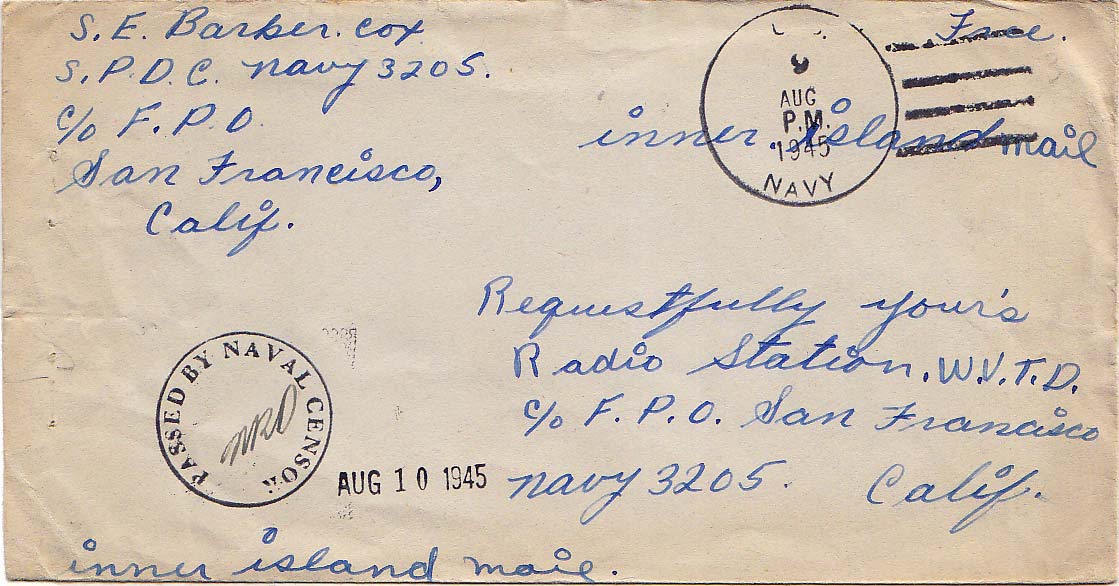 S. E. Barber. cox
S. P. D. C. Navy 3205.
c/o F. P. O.
San Francisco,
Calif.
Free.
U.S.
9
AUG
P.M.
1945
NAVY
inner island mail
Requestfully your's
Radio Station. W.V.T.D.
c/o F. P. O. San Francisco
Navy 3205. Calif.
PASSED BY NAVAL CENSOR
AUG 10 1945
inner island mail.